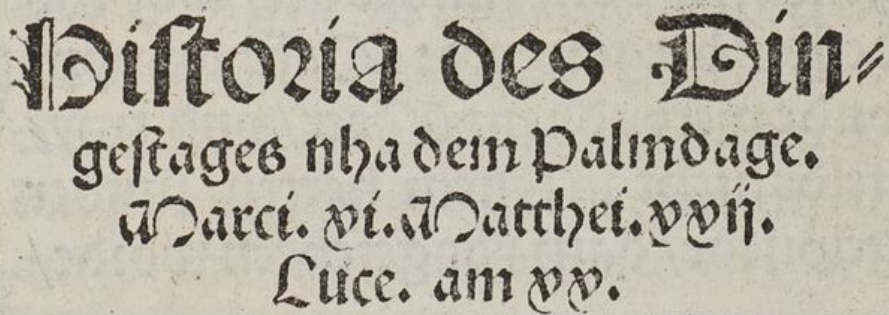 Historia des Din⸗
gestages nha dem Palmdage.
Marci. xi. Matthei. xxij.
Luce. am xx.